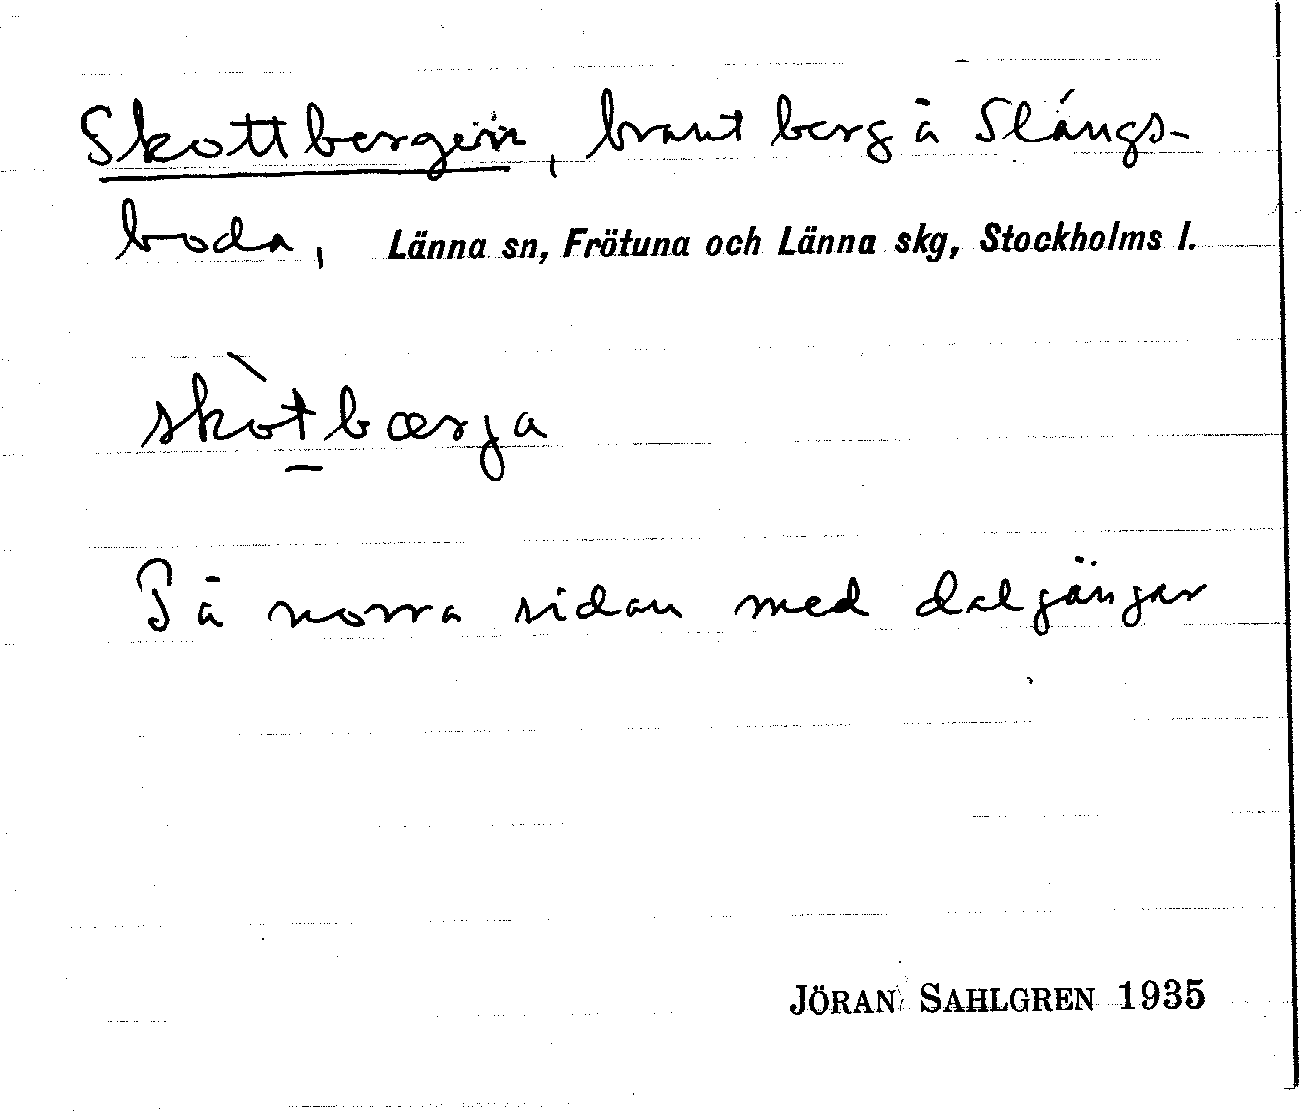 Skottbergen, brant berg å Slångs-
boda, Länna sn, Frötuna och Länna skg, Stockholms l.
skòt̠bærja
På norra sidan med dalgångar
JÖRAN SAHLGREN 1935